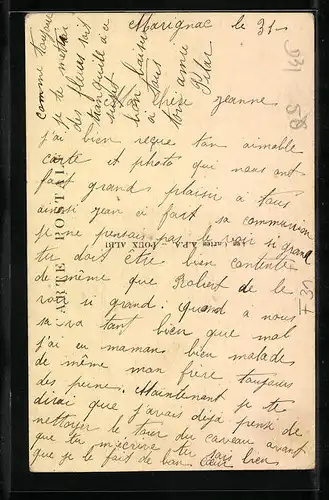 Marignac le 31-
Chère Jeanne
j'ai bien reçue ton aimable
carte et photo qui nous ont
fait grands plaisir a tous
ainsi jean à fait sa communion
je ne pensais pas le voir si grand
tu doit être bien contente
de même que Robert de le
voir si grand. Quand a nous
sa va tant bien que mal
j'ai eu maman bien malade
de même mon frère toujours
des Maintenant je te
dirai que j'avais déjà pensé de
nettoyer le tour du caveau avant
que tu m'écrive tu sais bien
que je le fait de bon cœur
comme toujours
je te metrai
des fleurs soit
tranquille à ce
sujet
bon baiser
a tous
toi amie
CARTE POSTALE
POUX ALBI